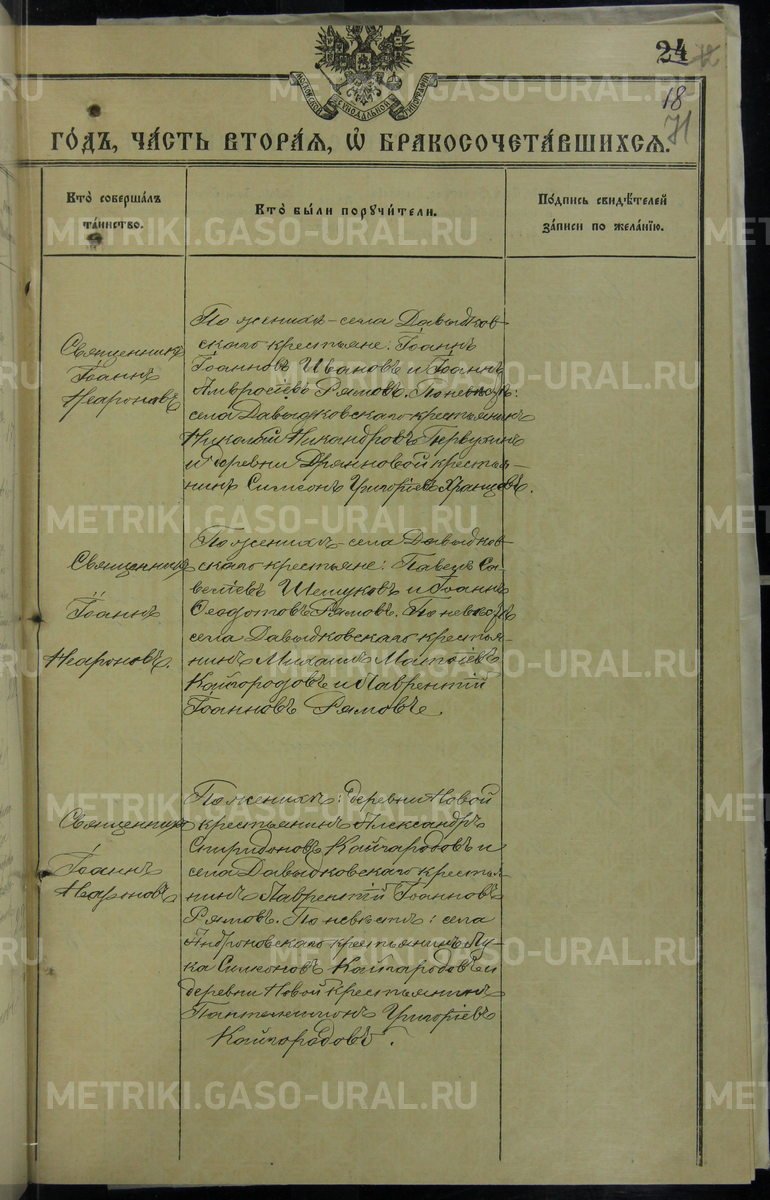 24
18
71
МОСКОВСКОЙ СѴНОДАЛЬНОЙ ТИПОГРАФІИ
ГОДЪ, ЧАСТЬ ВТОРАЯ, Ѡ БРАКОСОЧЕТАВШИХСЯ.
Кто совершалъ таинство.
Кто были поручители.
Подпись свидѣтелей записи по желанію.
Священникъ
Іоаннъ
Неароновъ
По женихѣ - села Давыдков-
скаго крестьяне: Іоаннъ
Іоанновъ Ивановъ и Іоаннъ
Амвросіевъ Рямовъ. По невѣстѣ:
села Давыдковскаго крестьянинъ
Николай Никандровъ Первухинъ
и деревни крестья-
нинъ Симеонъ Григоріевъ Храмцовъ.
Священникъ
Іоаннъ
Неароновъ.
По женихѣ - села Давыдков-
скаго крестьяне: Павелъ Са-
веліевъ Шешуковъ и Іоаннъ
Ѳеодотовъ Рямовъ. По невѣстѣ
села Давыдковскаго крестья-
нинъ Михаилъ Матѳіевъ
Кайгородовъ и Лаврентій
Іоанновъ Рямовъ.
Священникъ
Іоаннъ
Неароновъ
По женихѣ: деревни Новой
крестьянинъ Александръ
Спиридоновъ Кайгародовъ и
села Давыдковскаго крестья-
нинъ Лаврентій Іоанновъ
Рямовъ. По невѣстѣ: села
Андроновскаго крестьянинъ Лу-
ка Симеоновъ Кайгародовъ и
деревни Новой крестьянинъ
Пантелеимонъ Григоріевъ
Кайгородовъ.
METRIKI.GASO-URAL.RU